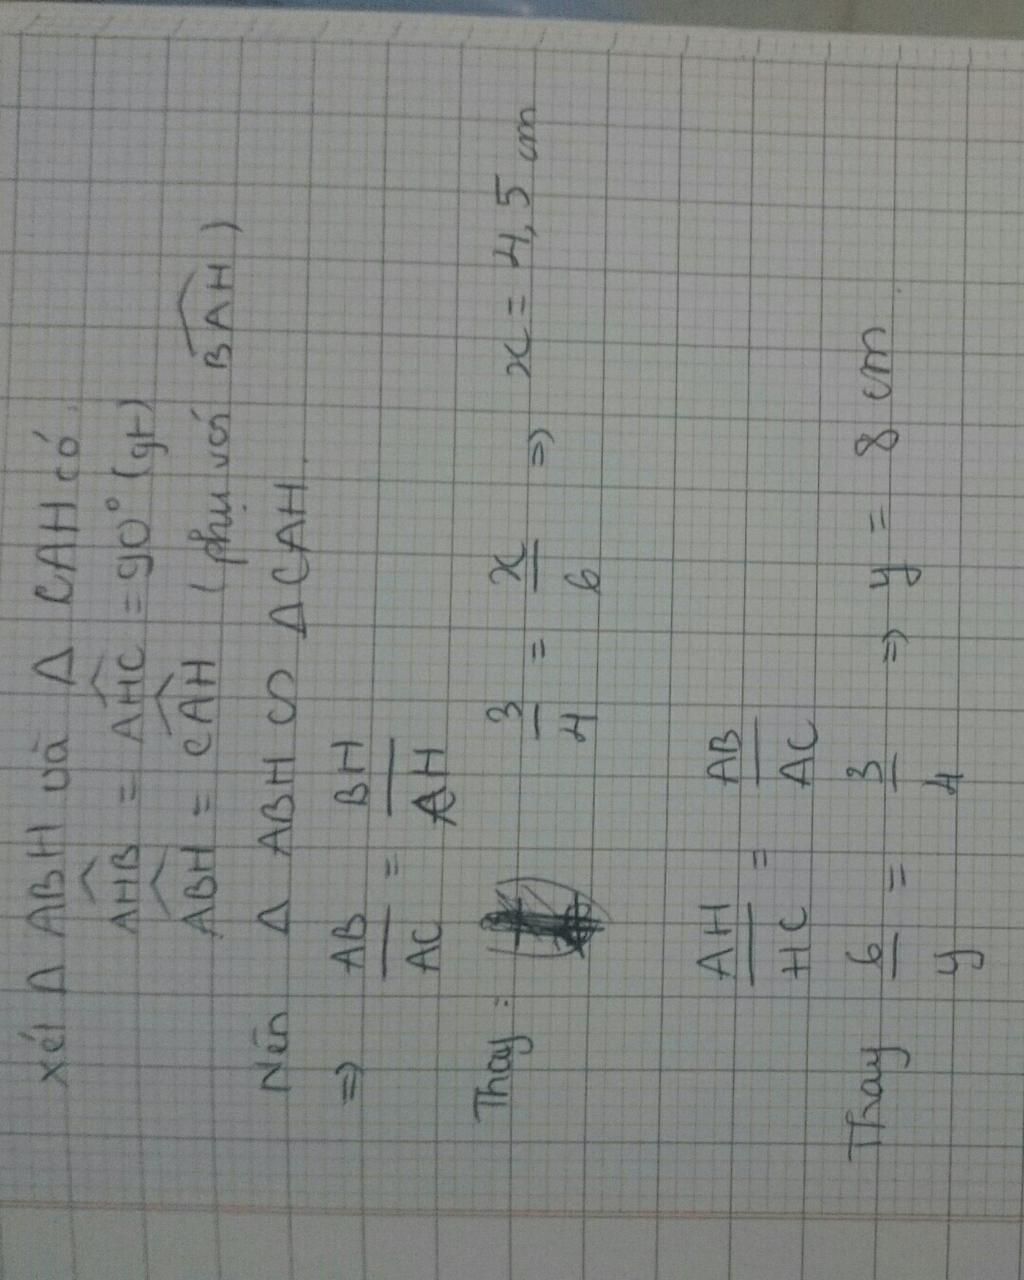 xét Δ ABH và Δ CAH có
AHB = AHC = 90° (gt)
ABH = CAH (phụ với BAH)
Nên Δ ABH ∽ Δ CAH.
⇒ AB/AC = BH/AH
Thay : 3/4 = x/6 ⇒ x = 4,5 cm
AH/HC = AB/AC
Thay 6/y = 3/4 ⇒ y = 8 cm